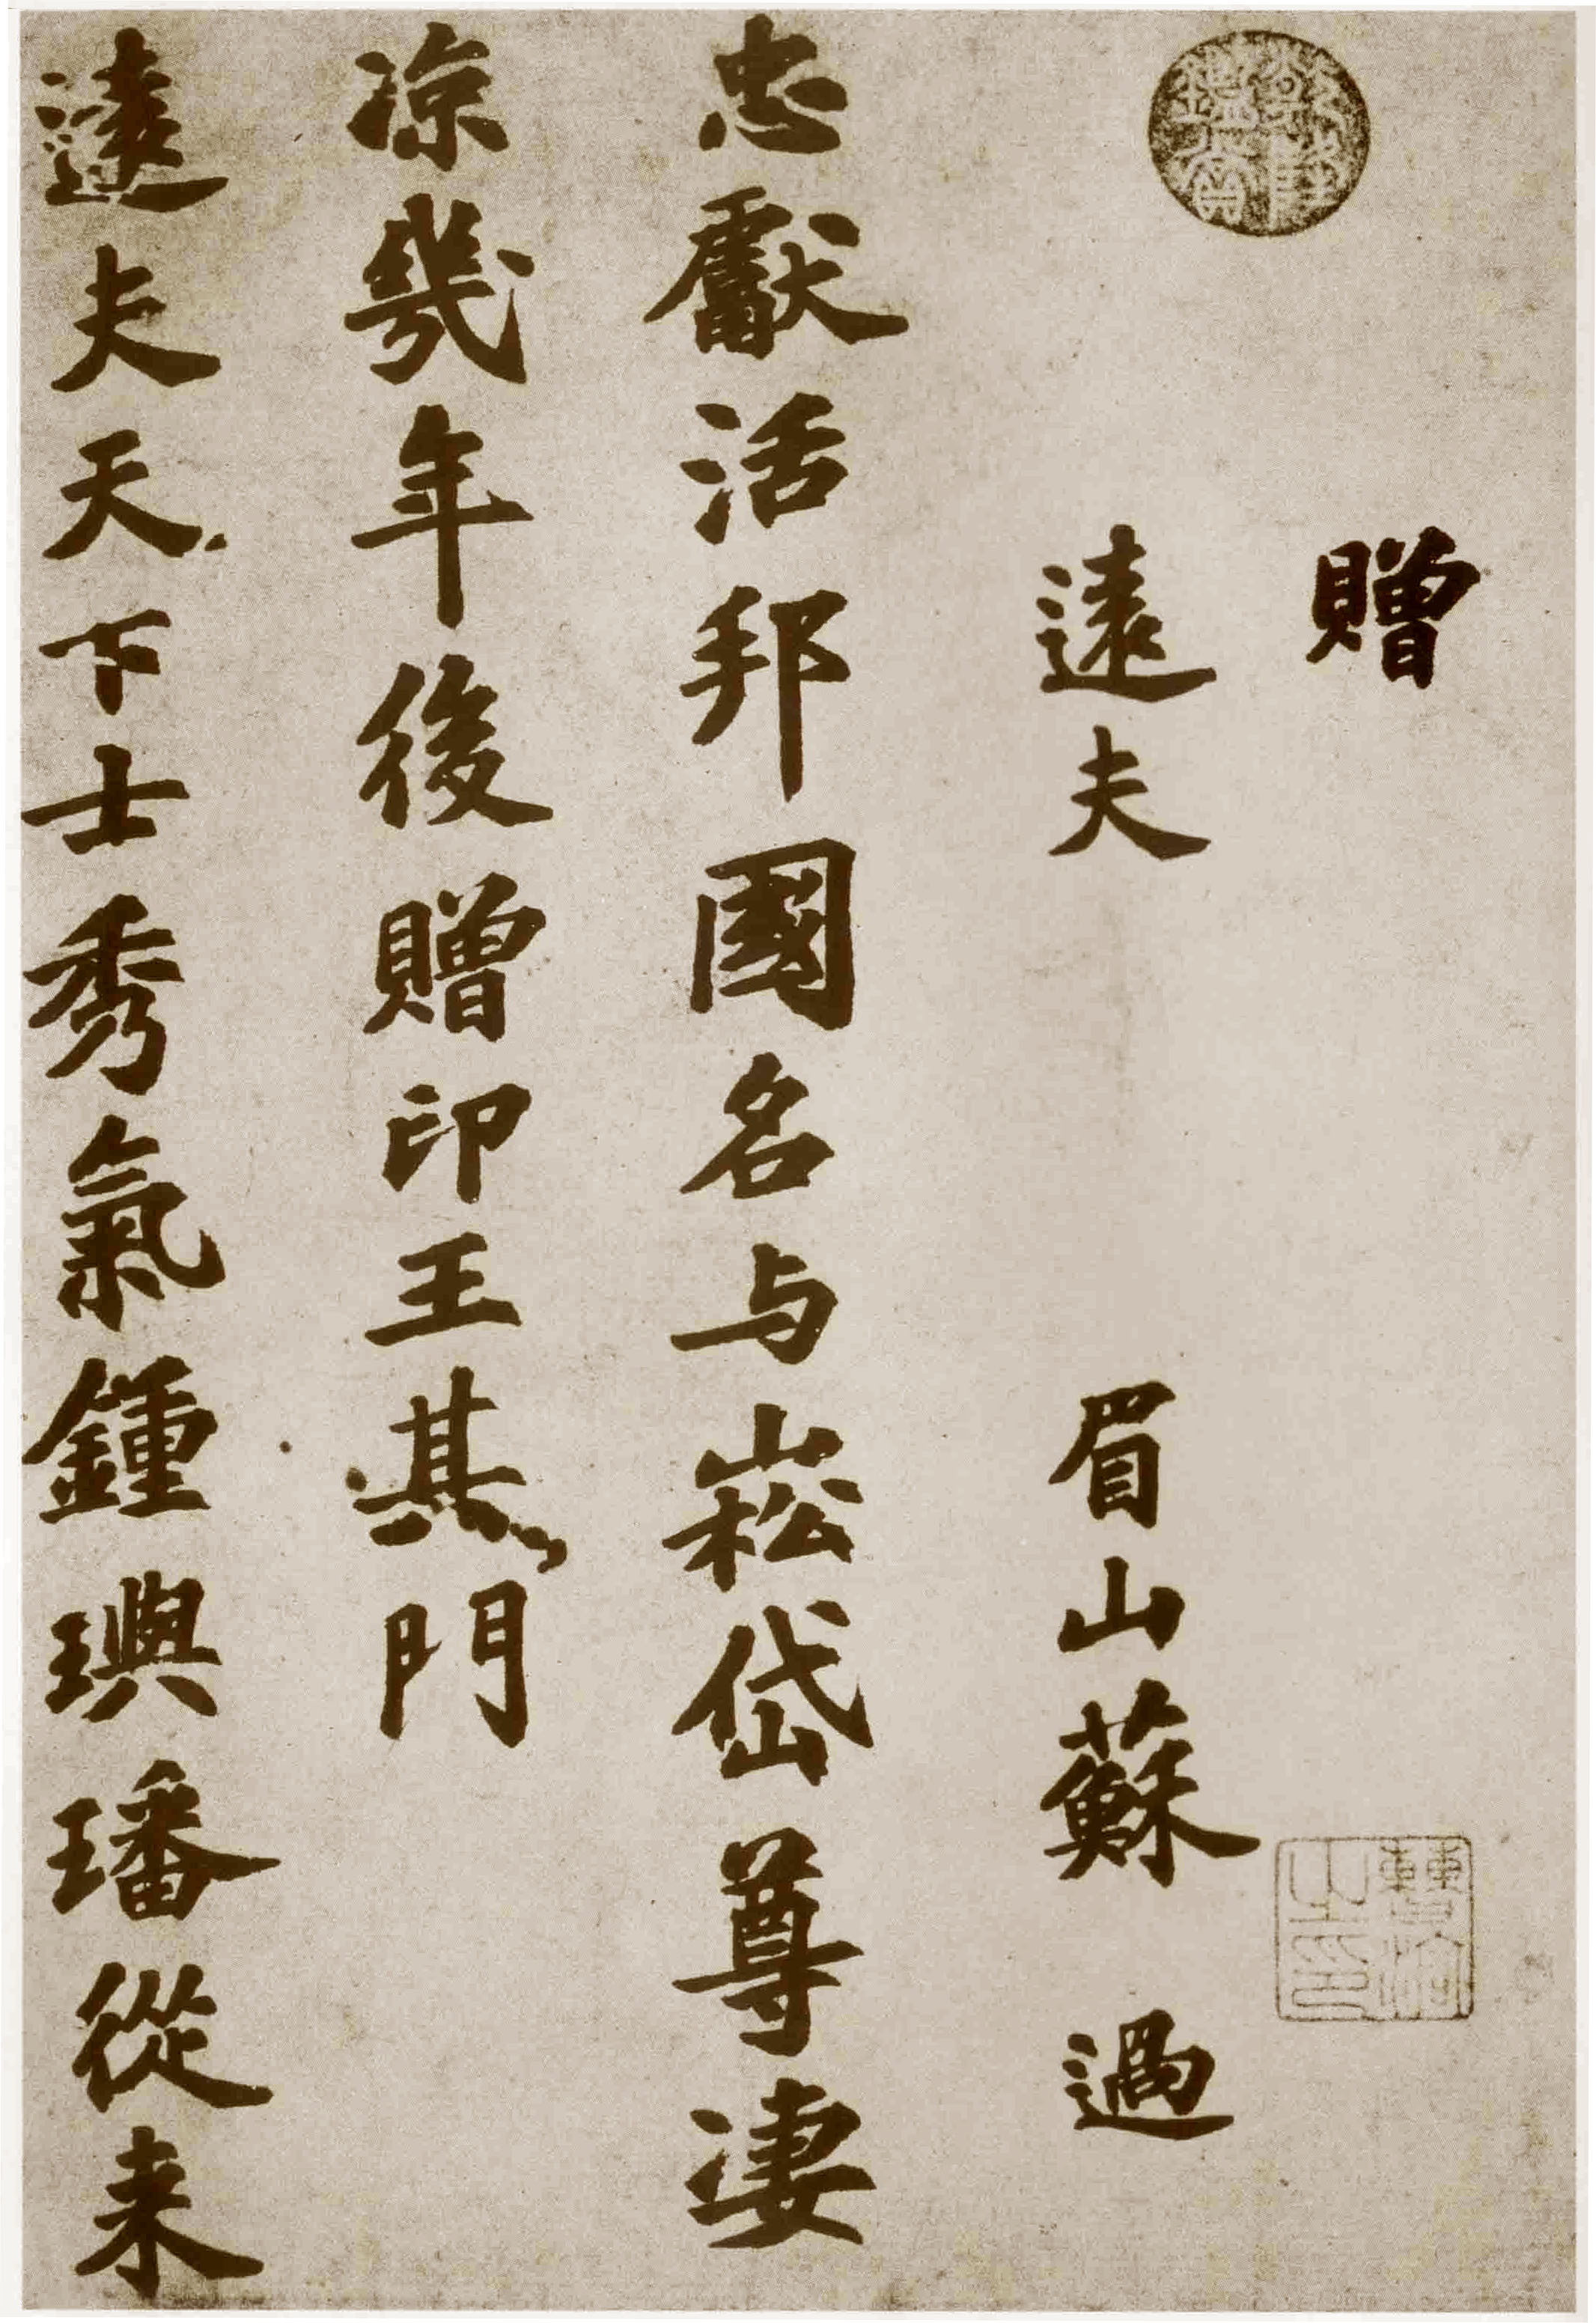 贈
遠夫
眉山蘇過
忠獻活邦國名与崧岱尊淒
凉幾年後贈印王其門
遠夫天下士秀氣鍾璵璠從来